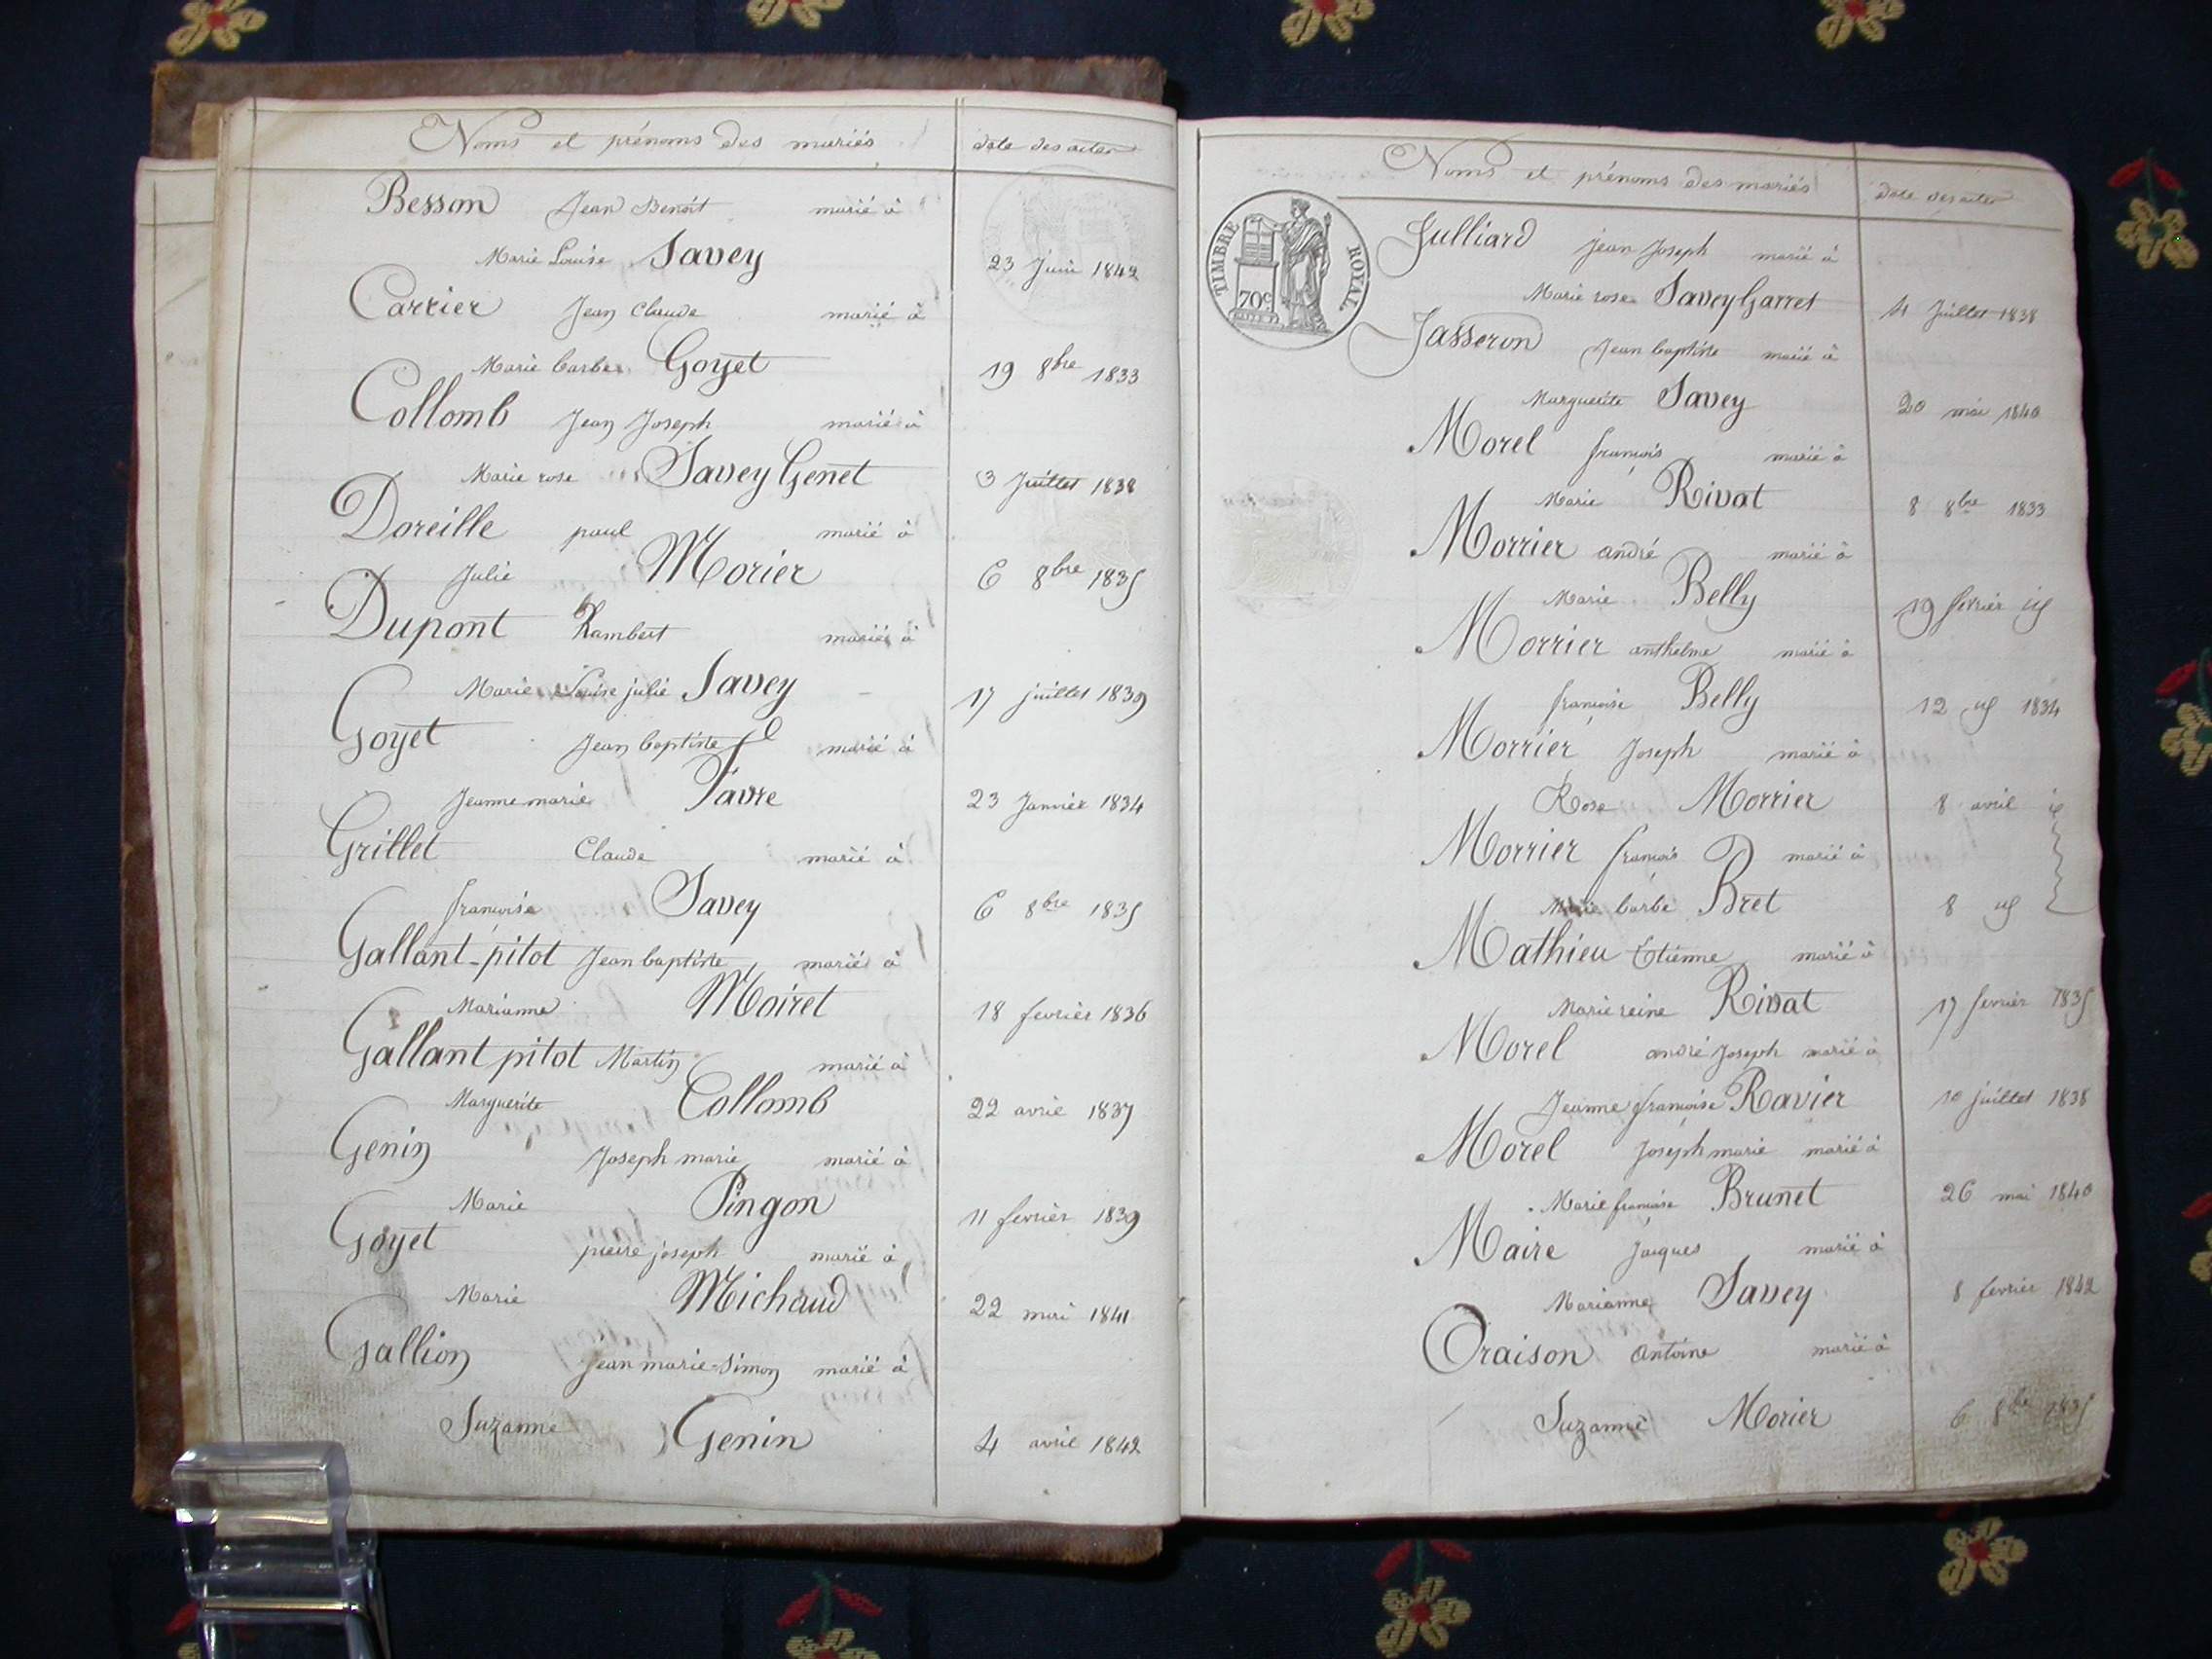 Noms et prénoms des mariés date des actes
Besson Jean Benoit marié à
Marie Louise Savey 23 Juin 1842
Carrier Jean Claude marié à
Marie barbe Goyet 19 8bre 1833
Collomb Jean Joseph marié à
Marie rose Savey Genet 3 Juillet 1838
Doreille paul marié à
Julie Morier 6 8bre 1835
Dupont Rambert marié à
Marie Louise julie Savey 17 juillet 1839
Goyet Jean baptiste marié à
Jeanne marie Favre 23 Janvier 1834
Grillet Claude marié à
françoise Savey 6 8bre 1835
Gallant-pitot Jean baptiste marié à
Marianne Moiret 18 fevrier 1836
Gallant pitot Martin marié à
Marguerite Collomb 22 avril 1837
Genin Joseph marie marié à
Marie Pingon 11 fevrier 1839
Goyet pierre joseph marié à
Marie Michaud 22 mai 1841
Gallion jean marie-Simon marié à
Suzanne Genin 4 avril 1842
Noms et prénoms des mariés date des actes
TIMBRE ROYAL
70c
Julliard jean Joseph marié à
Marie rose Savey Garret 4 Juillet 1838
Jasseron Jean baptiste marié à
Marguerite Savey 20 mai 1840
Morel françois marié à
Marie Rivat 8 8bre 1833
Morrier andré marié à
Marie Belly 19 fevrier
Morrier anthelme marié à
françoise Belly 12 1834
Morrier Joseph marié à
Rose Morrier 8 avril
Morrier françois marié à
Marie barbe Bret 8
Mathieu Etienne marié à
Marie reine Rivat 17 fevrier 1835
Morel andré Joseph marié à
Jeanne françoise Ravier 10 juillet 1838
Morel Joseph marie marié à
Marie françoise Brunet 26 mai 1840
Maire Jacques marié à
Marianne Savey 8 fevrier 1842
Oraison Antoine marié à
Suzanne Morier 6 8bre 1835